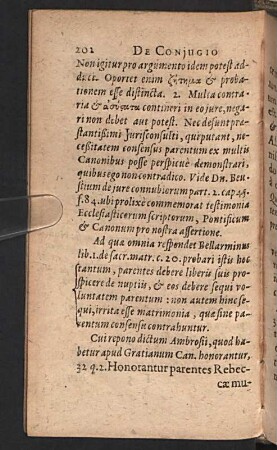 202 DE CONJUGIO
Non igitur pro argumento idem potest ad-
di.cc. Oportet enim ζήτημα & proba-
tionem esse distincta. 2. Multa contra-
ria & ἀσύςατα contineri in eo jure, nega-
ri non debet aut potest. Nec desunt præ-
stantissimi Jurisconsulti, qui putant, ne-
cessitatem consensus parentum ex multis
Canonibus posse perspicuè demonstrari,
quibus ego non contradico. Vide Dn. Beu-
stium de jure connubiorum part. 2. cap. 45.
f. 84. ubi prolixè commemorat testimonia
Ecclesiasticorum scriptorum, Pontificum
& Canonum pro nostra assertione.
Ad quæ omnia respondet Bellarminus
lib. 1. de sacr. matr. c. 20. probari istis hoc
tantum, parentes debere liberis suis pro-
spicere de nuptiis, & eos debere sequi vo-
luntatem parentum: non autem hinc se-
qui, irrita esse matrimonia, quæ sine pa-
rentum consensu contrahuntur.
Cui repono dictum Ambrosii, quod ha-
betur apud Gratianum Can. honorantur,
32 q. 2. Honorantur parentes Rebec-
cæ mu-